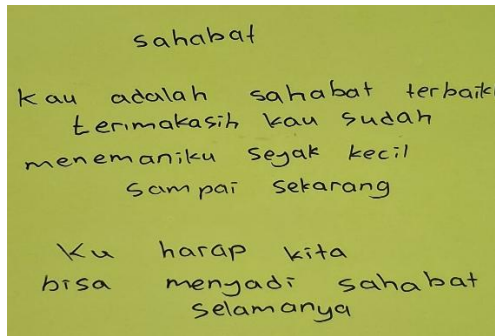 sahabat
kau adalah sahabat terbaik
terimakasih kau sudah
menemaniku seyak kecil
sampai sekarang
Ku harap kita
bisa menyadi sahabat
selamanya